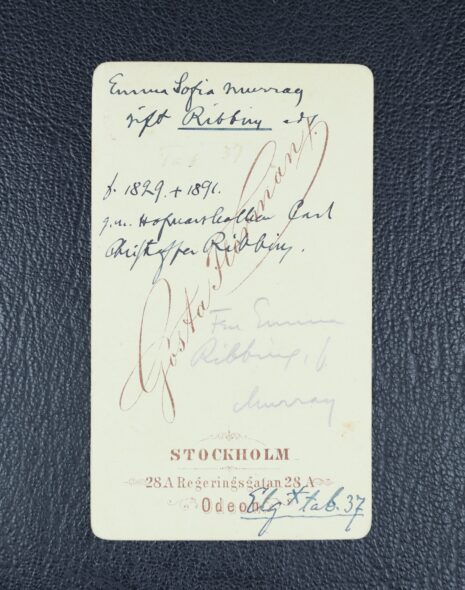 Emma Sofia Murray
gift Ribbing
Tab 37
f. 1829. + 1891.
g.m. Hofmarskalken Carl
Christoffer Ribbing.
Gösta Florman
Fru Emma
Ribbing, f.
Murray
STOCKHOLM
28 A Regeringsgatan 28 A
Odeon
Elg. tab. 37